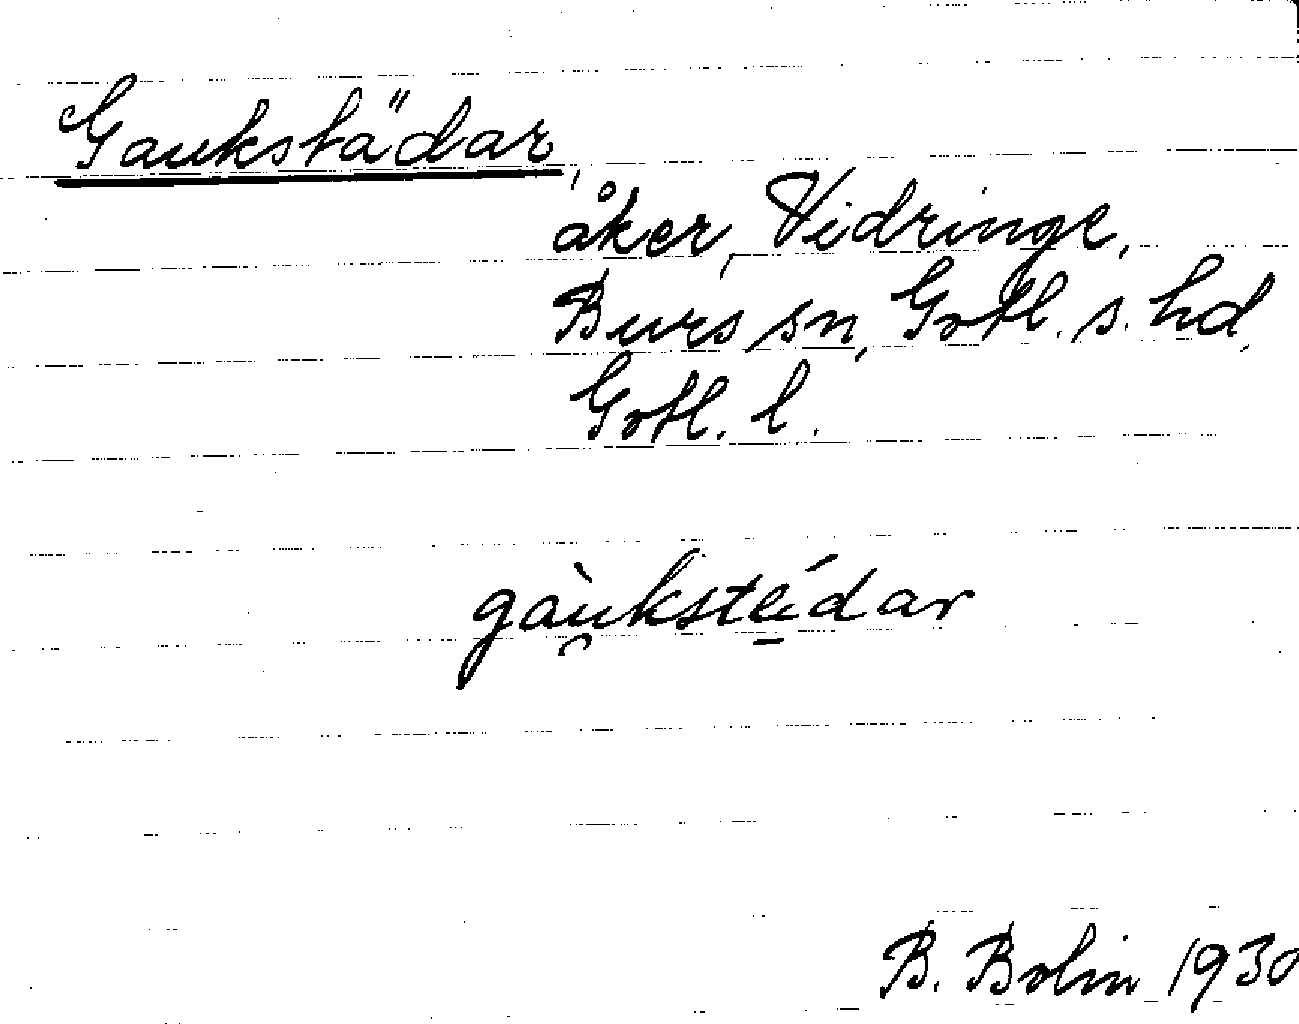 Gaukstädar,
åker, Vidringe,
Burs sn, Gotl. s. hd,
Gotl. l.
gàu̯kste̱´dar
B. Bolin 1930